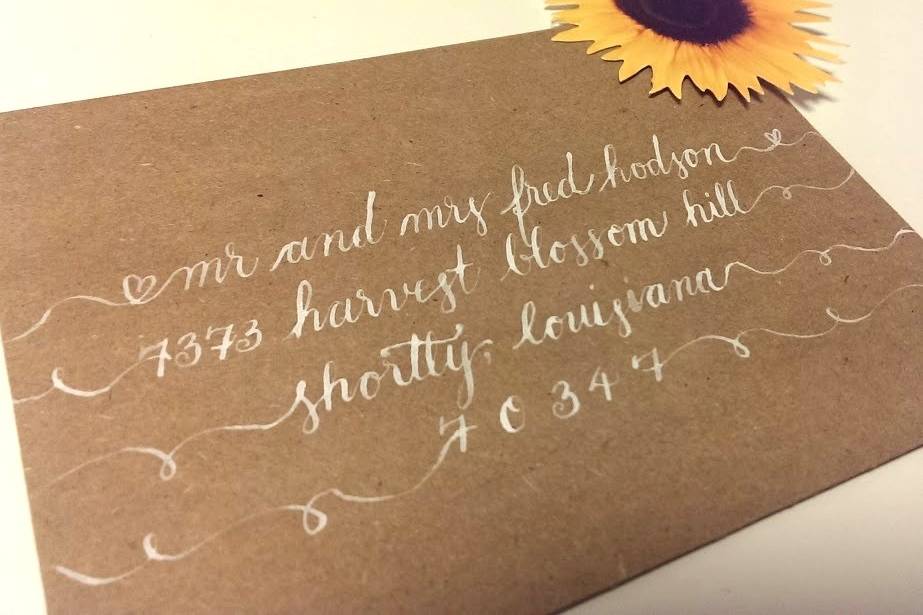 mr and mrs fred hodson
7373 harvest blossom hill
shortty, louisiana
70347